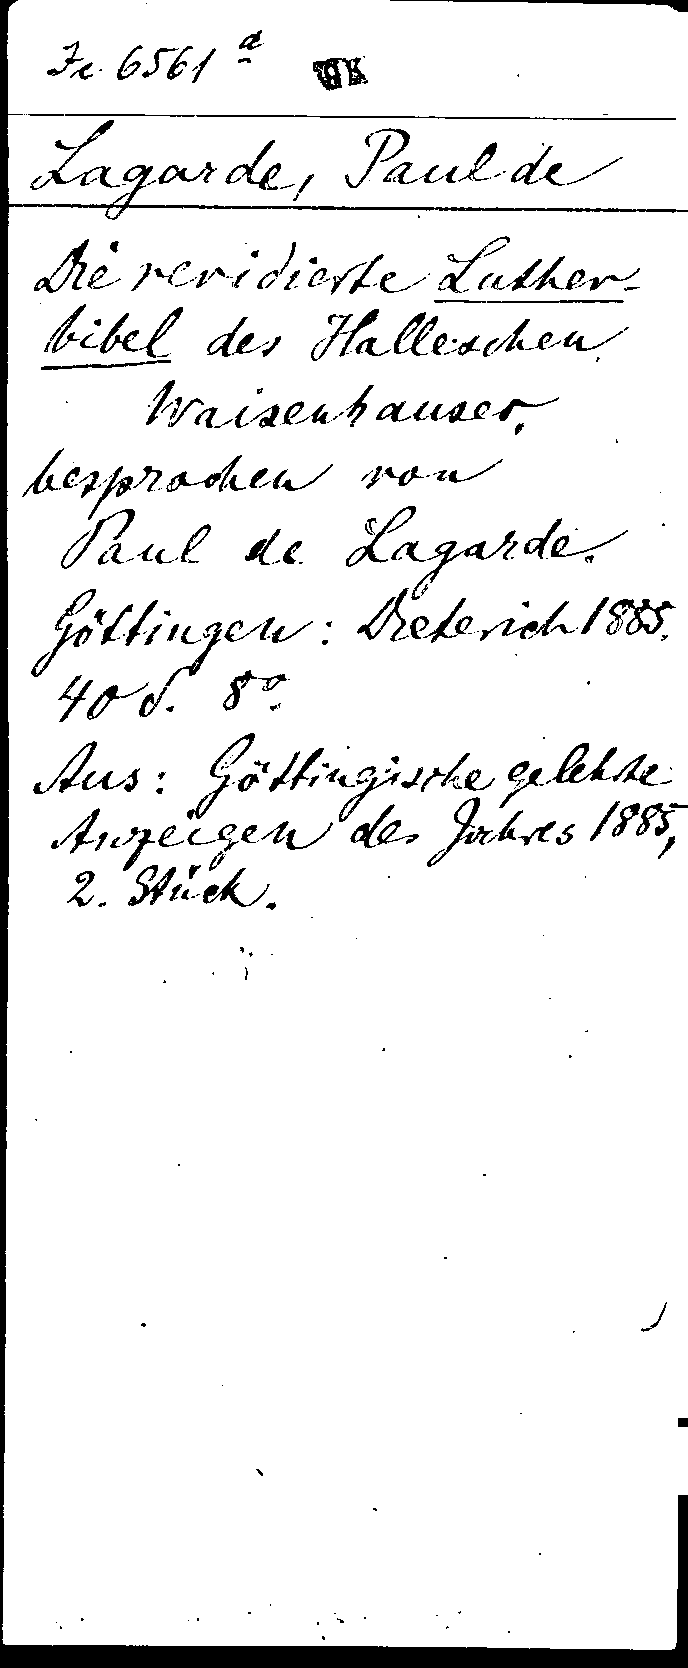 Fc 6561 a
Lagarde, Paul de
Die revidierte Luther-
bibel des Halleschen
Waisenhauses,
besprochen von
Paul de Lagarde.
Göttingen: Dieterich 1885.
40 S. 8°.
Aus: Göttingische gelehrte
Anzeigen des Jahres 1885,
2. Stück.